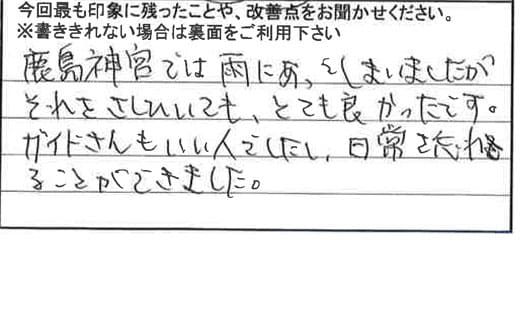 今回最も印象に残ったことや、改善点をお聞かせください。
※書ききれない場合は裏面をご利用下さい
鹿島神宮では雨にあってしまいましたが
それをさしひいても、とても良かったです。
ガイドさんもいい人でしたし、日常を忘れ
ることができました。